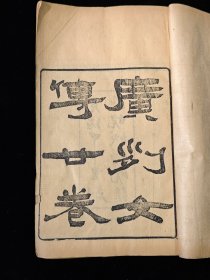 廣列女
傳廿卷